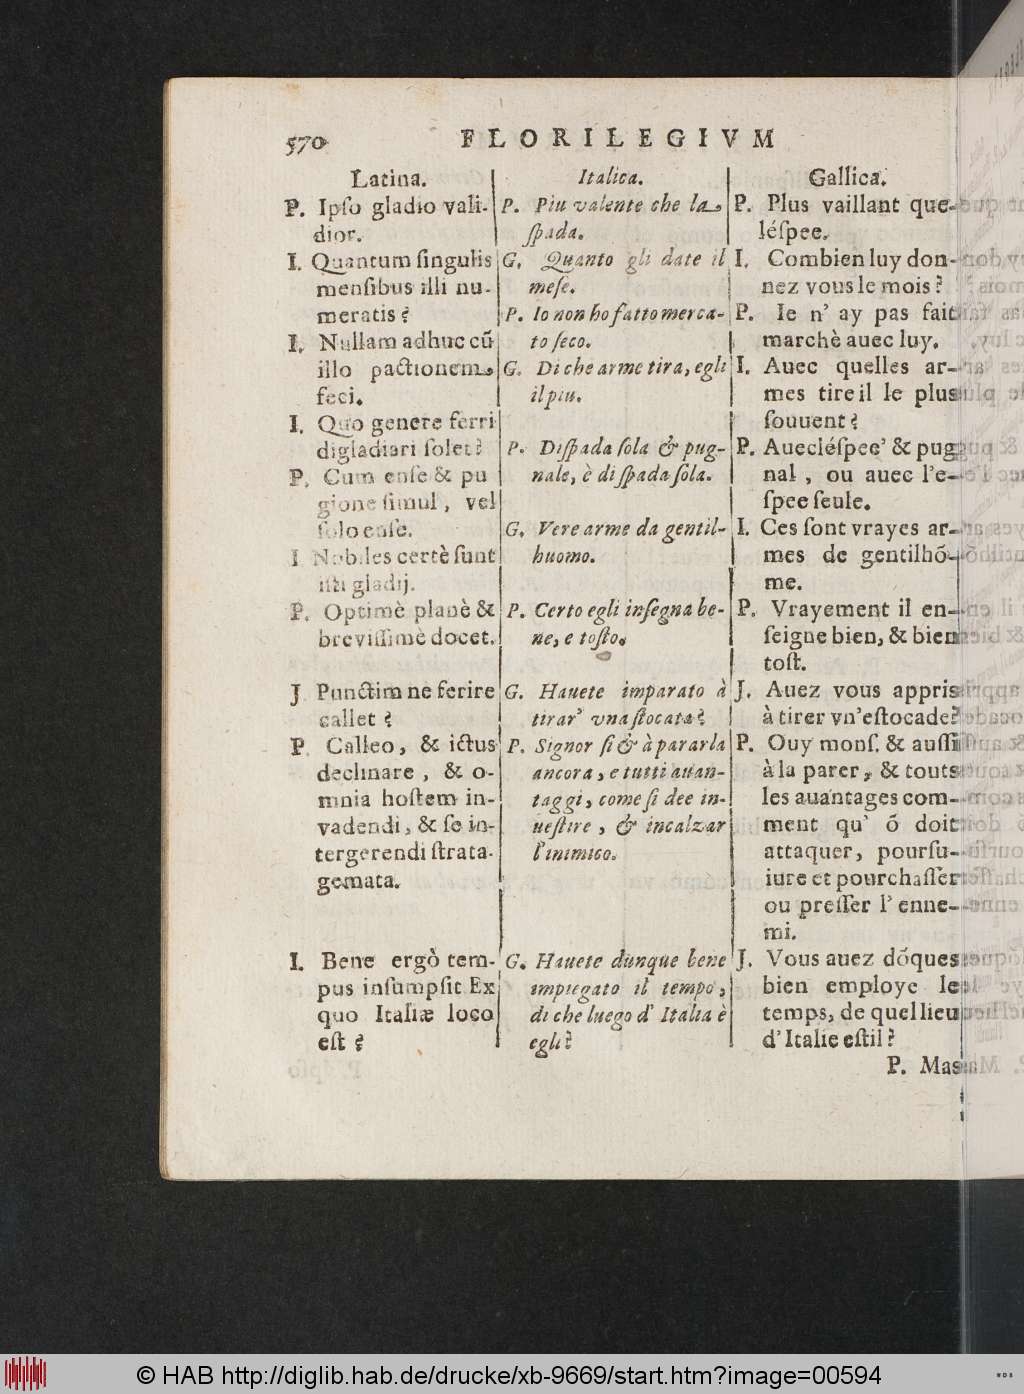 570
FLORILEGIVM
Latina.
P. Ipſo gladio vali-
dior.
I. Quantum ſingulis
menſibus illi nu-
meratis?
I. Nullam adhuc cū
illo pactionem
feci.
I. Quo genere ferri
digladiari ſolet?
P. Cum enſe & pu
gione ſimul, vel
ſolo enſe.
I Nobiles certè ſunt
iſti gladij.
P. Optimè planè &
breviſſimè docet.
J Punctim ne ferire
callet?
P. Calleo, & ictus
declinare, & o-
mnia hoſtem in-
vadendi, & ſe in-
tergerendi ſtrata-
gemata.
I. Bene ergò tem-
pus inſumpſit Ex
quo Italiæ loco
eſt?
Italica.
P. Piu valente che la
ſpada.
G. Quanto gli date il
meſe.
P. Io non ho fatto merca-
to ſeco.
G. Di che arme tira, egli
il piu.
P. Di ſpada ſola & pug-
nale, è di ſpada ſola.
G. Vere arme da gentil-
huomo.
P. Certo egli inſegna be-
ne, e toſto.
G. Hauete imparato à
tirar' vna ſtocata?
P. Signor ſi & à pararla
ancora, e tutti auan-
taggi, come ſi dee in-
ueſtire, & incalzar
l'inimico.
G. Hauete dunque bene
impiegato il tempo,
di che luego d' Italia è
egli?
Gallica.
P. Plus vaillant que
léſpee.
I. Combien luy don-
nez vous le mois?
P. Ie n' ay pas fait
marchè auec luy.
I. Auec quelles ar-
mes tire il le plus
ſouuent?
P. Auecléſpee' & pug
nal, ou auec l'e-
ſpee ſeule.
I. Ces ſont vrayes ar-
mes de gentilhō-
me.
P. Vrayement il en-
ſeigne bien, & bien
toſt.
J. Auez vous appris
à tirer vn'eſtocade?
P. Ouy monſ. & auſſi
à la parer, & touts
les auantages com-
ment qu' ō doit
attaquer, pourſu-
iure et pourchaſſer
ou preſſer l' enne-
mi.
J. Vous auez dōques
bien employe le
temps, de quel lieu
d'Italie eſtil?
P. Mas
© HAB http://diglib.hab.de/drucke/xb-9669/start.htm?image=00594